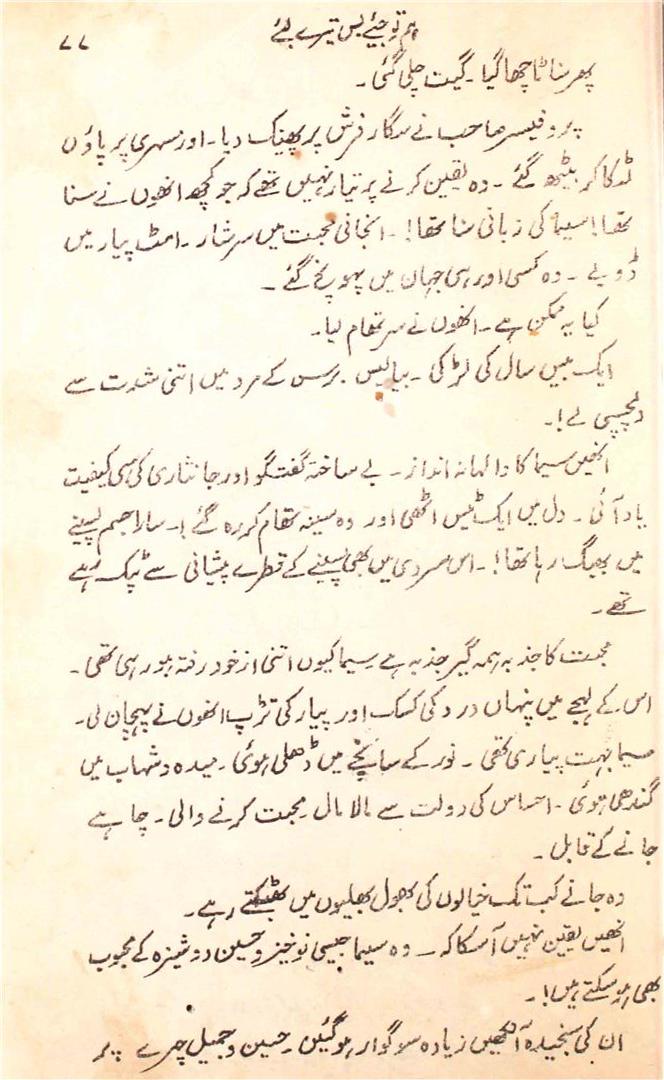 ہم تو جیئے بس تیرے لئے
۷۷
پھر سناٹا چھا گیا ۔ گیت چلی گئی ۔
پروفیسر صاحب نے سگار فرش پر پھینک دیا ۔ اور مسہری پر پاؤں
لٹکا کر بیٹھ گئے ۔ وہ یقین کرنے پر تیار نہیں تھے کہ جو کچھ انھوں نے سنا
تھا! سیما کی زبانی سنا تھا! ۔ انجانی محبت میں سرشار ۔ امٹ پیار میں
ڈوبے ۔ وہ کسی اور ہی جہان میں پہونچ گئے ۔
کیا یہ ممکن ہے ۔ انھوں نے سر تھام لیا ۔
ایک بیس سال کی لڑکی ۔ بیالیس برس کے مرد میں اتنی شدت سے
دلچسپی لے! ۔
انھیں سیما کا والہانہ انداز ۔ بے ساختہ گفتگو اور جانثاری کی سی کیفیت
یاد آئی ۔ دل میں ایک ٹیس اٹھی اور وہ سینہ تھام کر رہ گئے! ۔ سارا جسم پسینے
میں بھیگ رہا تھا! ۔ اس سردی میں بھی پسینے کے قطرے پیشانی سے ٹپک رہے
تھے ۔
محبت کا جذبہ ہمہ گیر جذبہ ہے ۔ سیما کیوں اتنی از خود رفتہ ہو رہی تھی ۔
اس کے لہجے میں پنہاں درد کی کسک اور پیار کی تڑپ انھوں نے پہچان لی ۔
سیما بہت پیاری تھی ۔ نور کے سانچے میں ڈھلی ہوئی ۔ میدہ و شہاب میں
گندھی ہوئی ۔ احساس کی دولت سے مالا مال ۔ محبت کرنے والی ۔ چاہے
جانے کے قابل ۔
وہ جانے کب تک خیالوں کی بھول بھلیوں میں بھٹکتے رہے ۔
انھیں یقین نہیں آسکا کہ ۔ وہ سیما جیسی نوخیز و حسین دوشیزہ کے محبوب
بھی ہو سکتے ہیں! ۔
ان کی سنجیدہ آنکھیں زیادہ سوگوار ہو گئیں ۔ حسین و جمیل چہرے پر